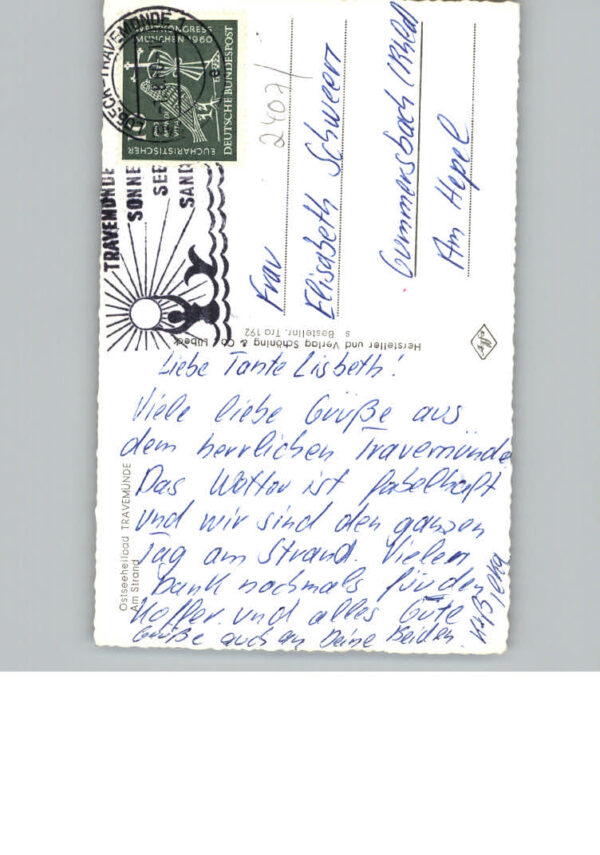 LÜBECK-TRAVEMÜNDE 1
EUCHARISTISCHER
WELTKONGRESS
MÜNCHEN 1960
DEUTSCHE BUNDESPOST
TRAVEMÜNDE
SONNE
SEE
SAND
2407/
Frau
Elisabeth Schweern
Gummersbach (Rhld)
Am Hepel
Hersteller und Verlag Schöning & Co., Lübeck
s Bestellnr. Tra 192
Ostseeheilbad TRAVEMÜNDE
Am Strand
Liebe Tante Lisbeth!
Viele liebe Grüße aus
dem herrlichen Travemünde
Das Wetter ist fabelhaft
und wir sind den ganzen
Tag am Strand. Vielen
Dank nochmals für den
Koffer. und alles Gute
Grüße auch an Deine Beiden.